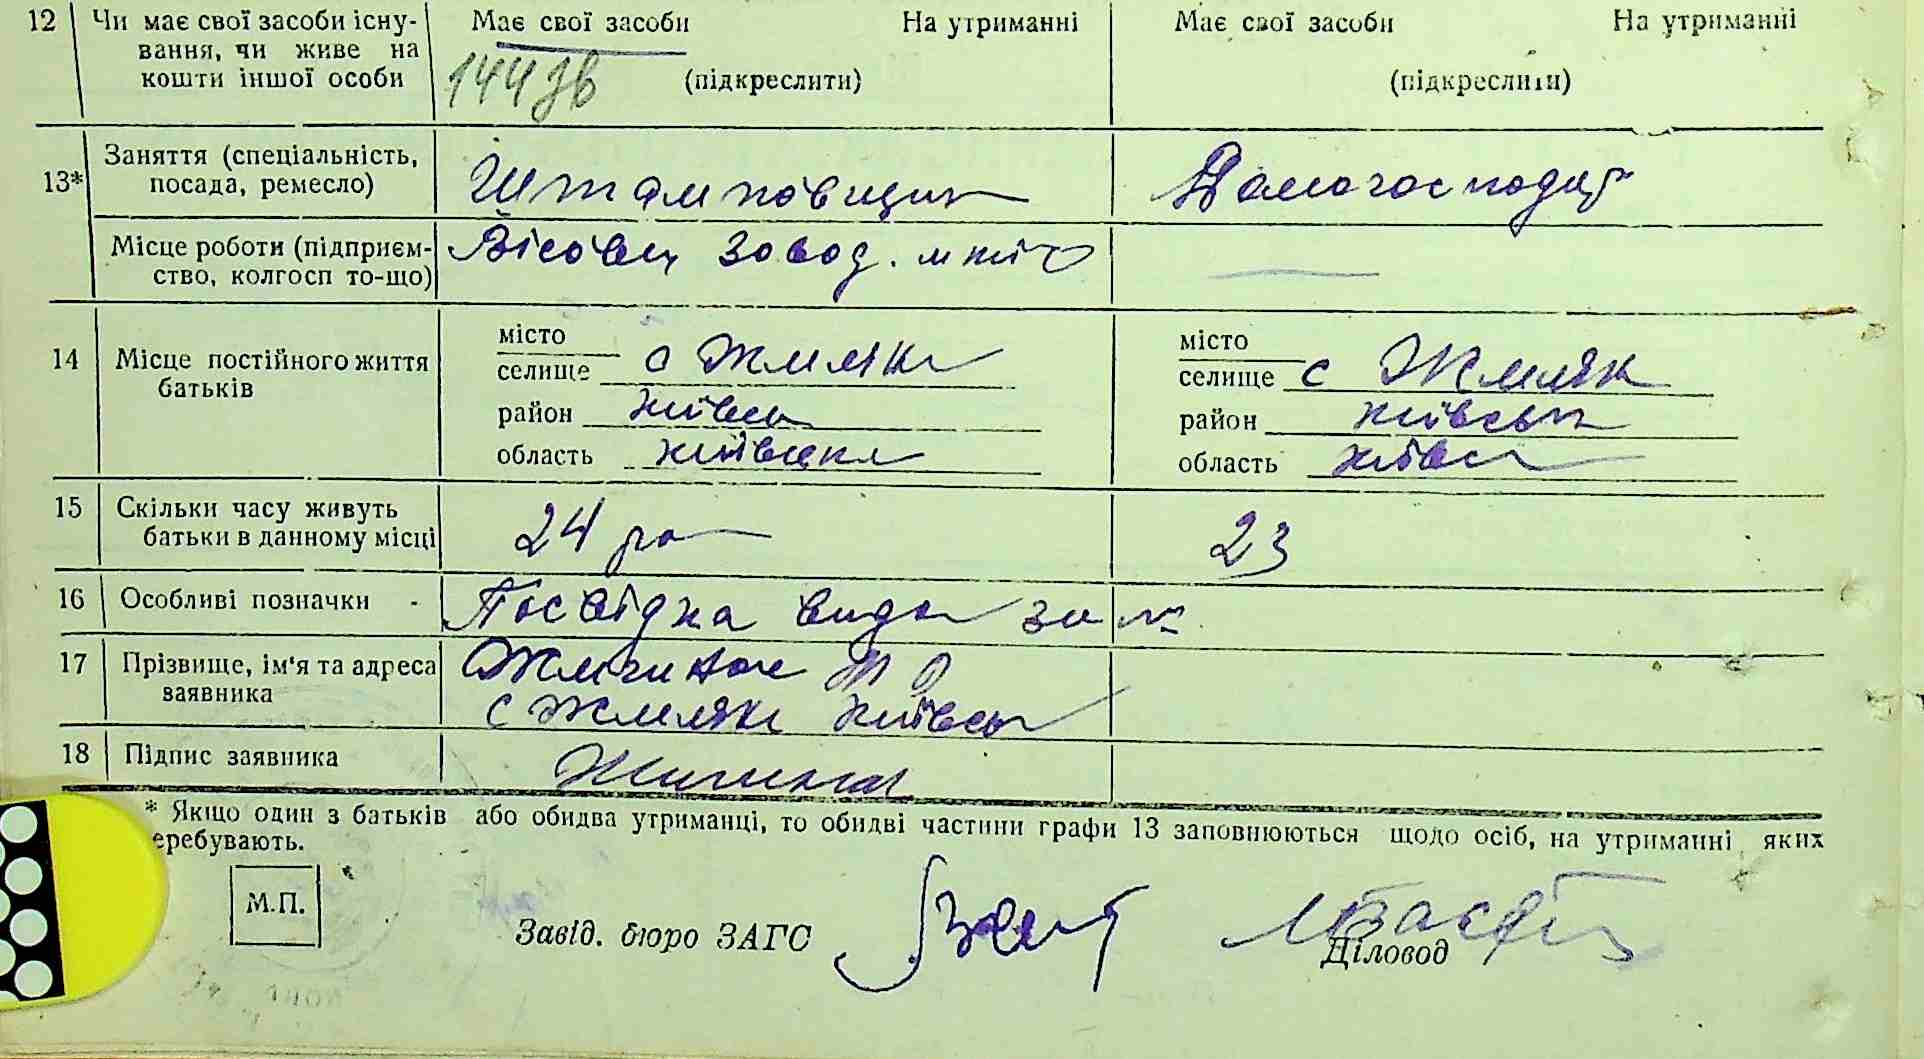 12 Чи має свої засоби існу- Має свої засоби На утриманні Має свої засоби На утриманні
вання, чи живе на
кошти іншої особи 144 (підкреслити) (підкреслити)
13* Заняття (спеціальність, посада, ремесло) Штамповщик Домогосподар
Місце роботи (підприєм- Вісовий завод. м київ
ство, колгосп то-що)
14 Місце постійного життя батьків
місто місто
селище с Жиляки селище с Жиляк
район київськ район київськ
область київська область київс
15 Скільки часу живуть 24 ро 23
батьки в данному місці
16 Особливі позначки - Посвідка видан за №
17 Прізвище, ім'я та адреса
заявника с Жиляки Київськ
18 Підпис заявника
* Якщо один з батьків або обидва утриманці, то обидві частини графи 13 заповнюються щодо осіб, на утриманні яких
еребувають.
М.П.
Завід. бюро ЗАГС
Діловод